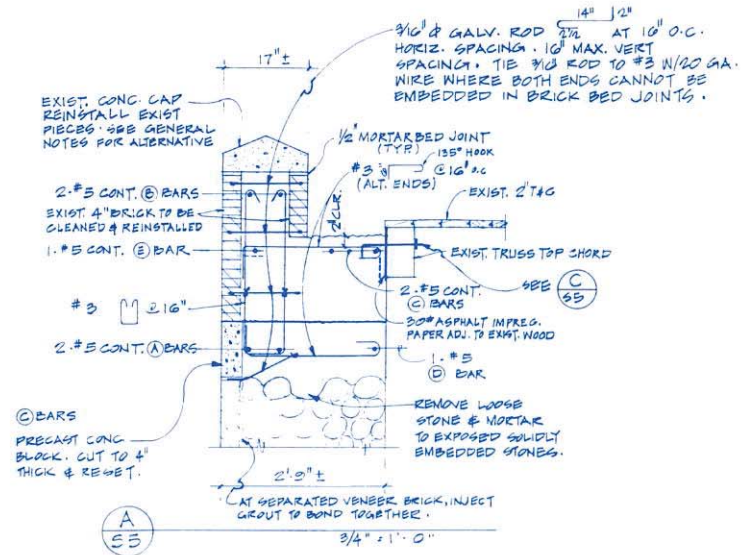 3/16" ϕ GALV. ROD 14" 2" 2 1/2 AT 16" O.C.
HORIZ. SPACING. 16" MAX. VERT
SPACING. TIE 3/16 ROD TO #3 W/20 GA.
WIRE WHERE BOTH ENDS CANNOT BE
EMBEDDED IN BRICK BED JOINTS.
17" ±
EXIST. CONC. CAP
REINSTALL EXIST
PIECES. SEE GENERAL
NOTES FOR ALTERNATIVE
1/2" MORTAR BED JOINT
(TYP.)
135° HOOK
#3 @ 16" O.C
(ALT. ENDS)
2-#5 CONT. B BARS
EXIST. 4" BRICK TO BE
CLEANED & REINSTALLED
2" CLR.
EXIST. 2" T&G
1-#5 CONT. E BAR
EXIST. TRUSS TOP CHORD
SEE C
S5
2-#5 CONT.
C BARS
#3 @ 16"
30# ASPHALT IMPREG.
PAPER ADJ. TO EXIST. WOOD
2-#5 CONT. A BARS
1-#5
D BAR
C BARS
PRECAST CONC
BLOCK. CUT TO 4"
THICK & RESET.
REMOVE LOOSE
STONE & MORTAR
TO EXPOSED SOLIDLY
EMBEDDED STONES.
2'-9" ±
AT SEPARATED VENEER BRICK, INJECT
GROUT TO BOND TOGETHER.
A
S5
3/4" = 1'-0"